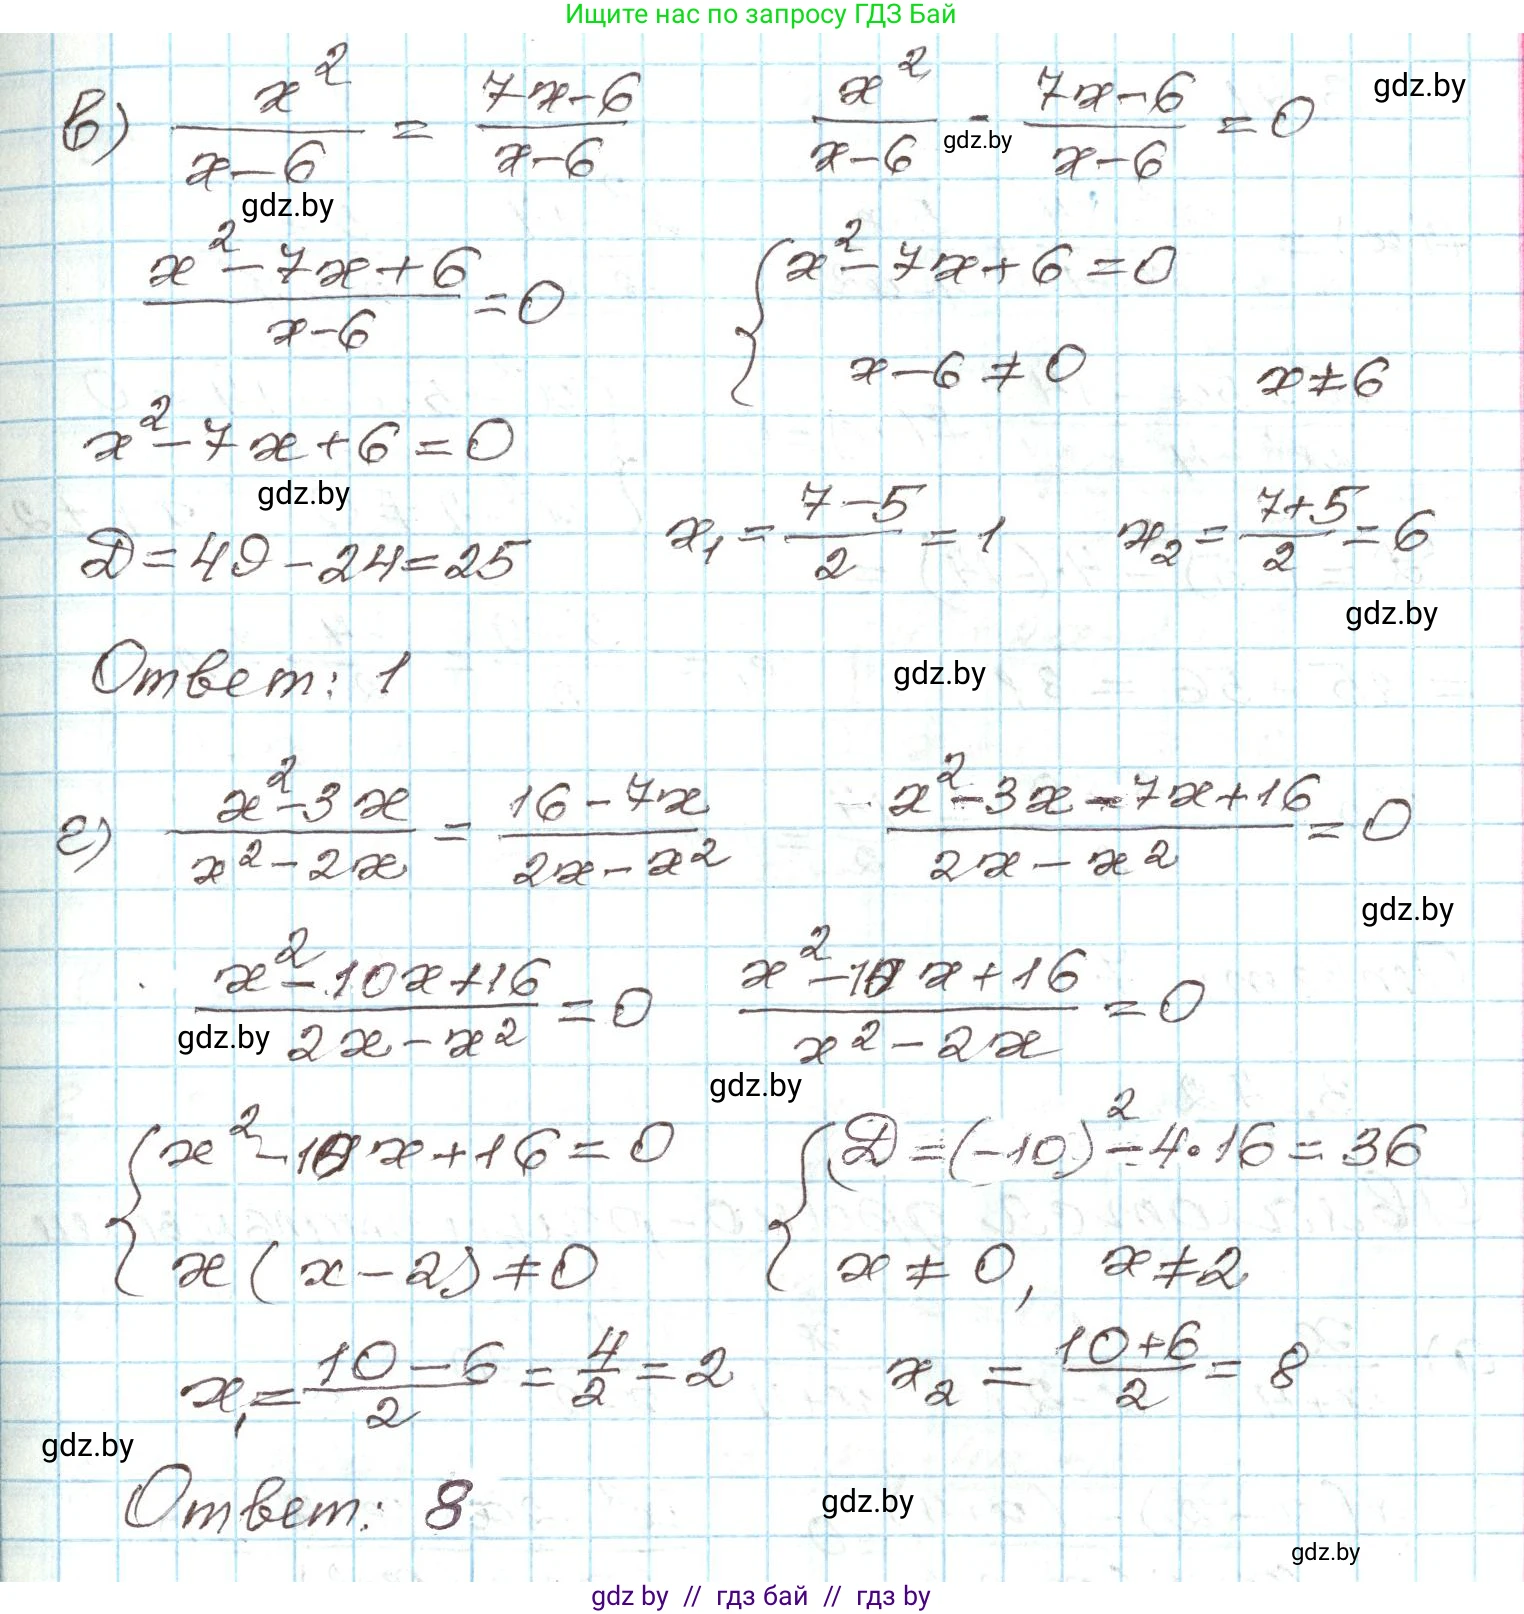 Ищите нас по запросу ГДЗ Бай
в) x²/(x-6) = (7x-6)/(x-6)    x²/(x-6) - (7x-6)/(x-6) = 0
gdz.by
gdz.by
gdz.by
(x²-7x+6)/(x-6) = 0    { x²-7x+6=0
x-6≠0    x≠6
x²-7x+6=0
gdz.by
D=49-24=25    x₁=(7-5)/2=1    x₂=(7+5)/2=6
gdz.by
Ответ: 1    gdz.by
г) (x²-3x)/(x²-2x) = (16-7x)/(2x-x²)    (x²-3x-7x+16)/(2x-x²) = 0
gdz.by
(x²-10x+16)/(2x-x²) = 0    (x²-10x+16)/(x²-2x) = 0
gdz.by
gdz.by
{ x²-10x+16=0    { D=(-10)²-4·16=36
x(x-2)≠0    x≠0, x≠2
x₁=(10-6)/2=4/2=2    x₂=(10+6)/2=8
gdz.by
Ответ: 8    gdz.by
gdz.by
gdz by // гдз бай // гдз by